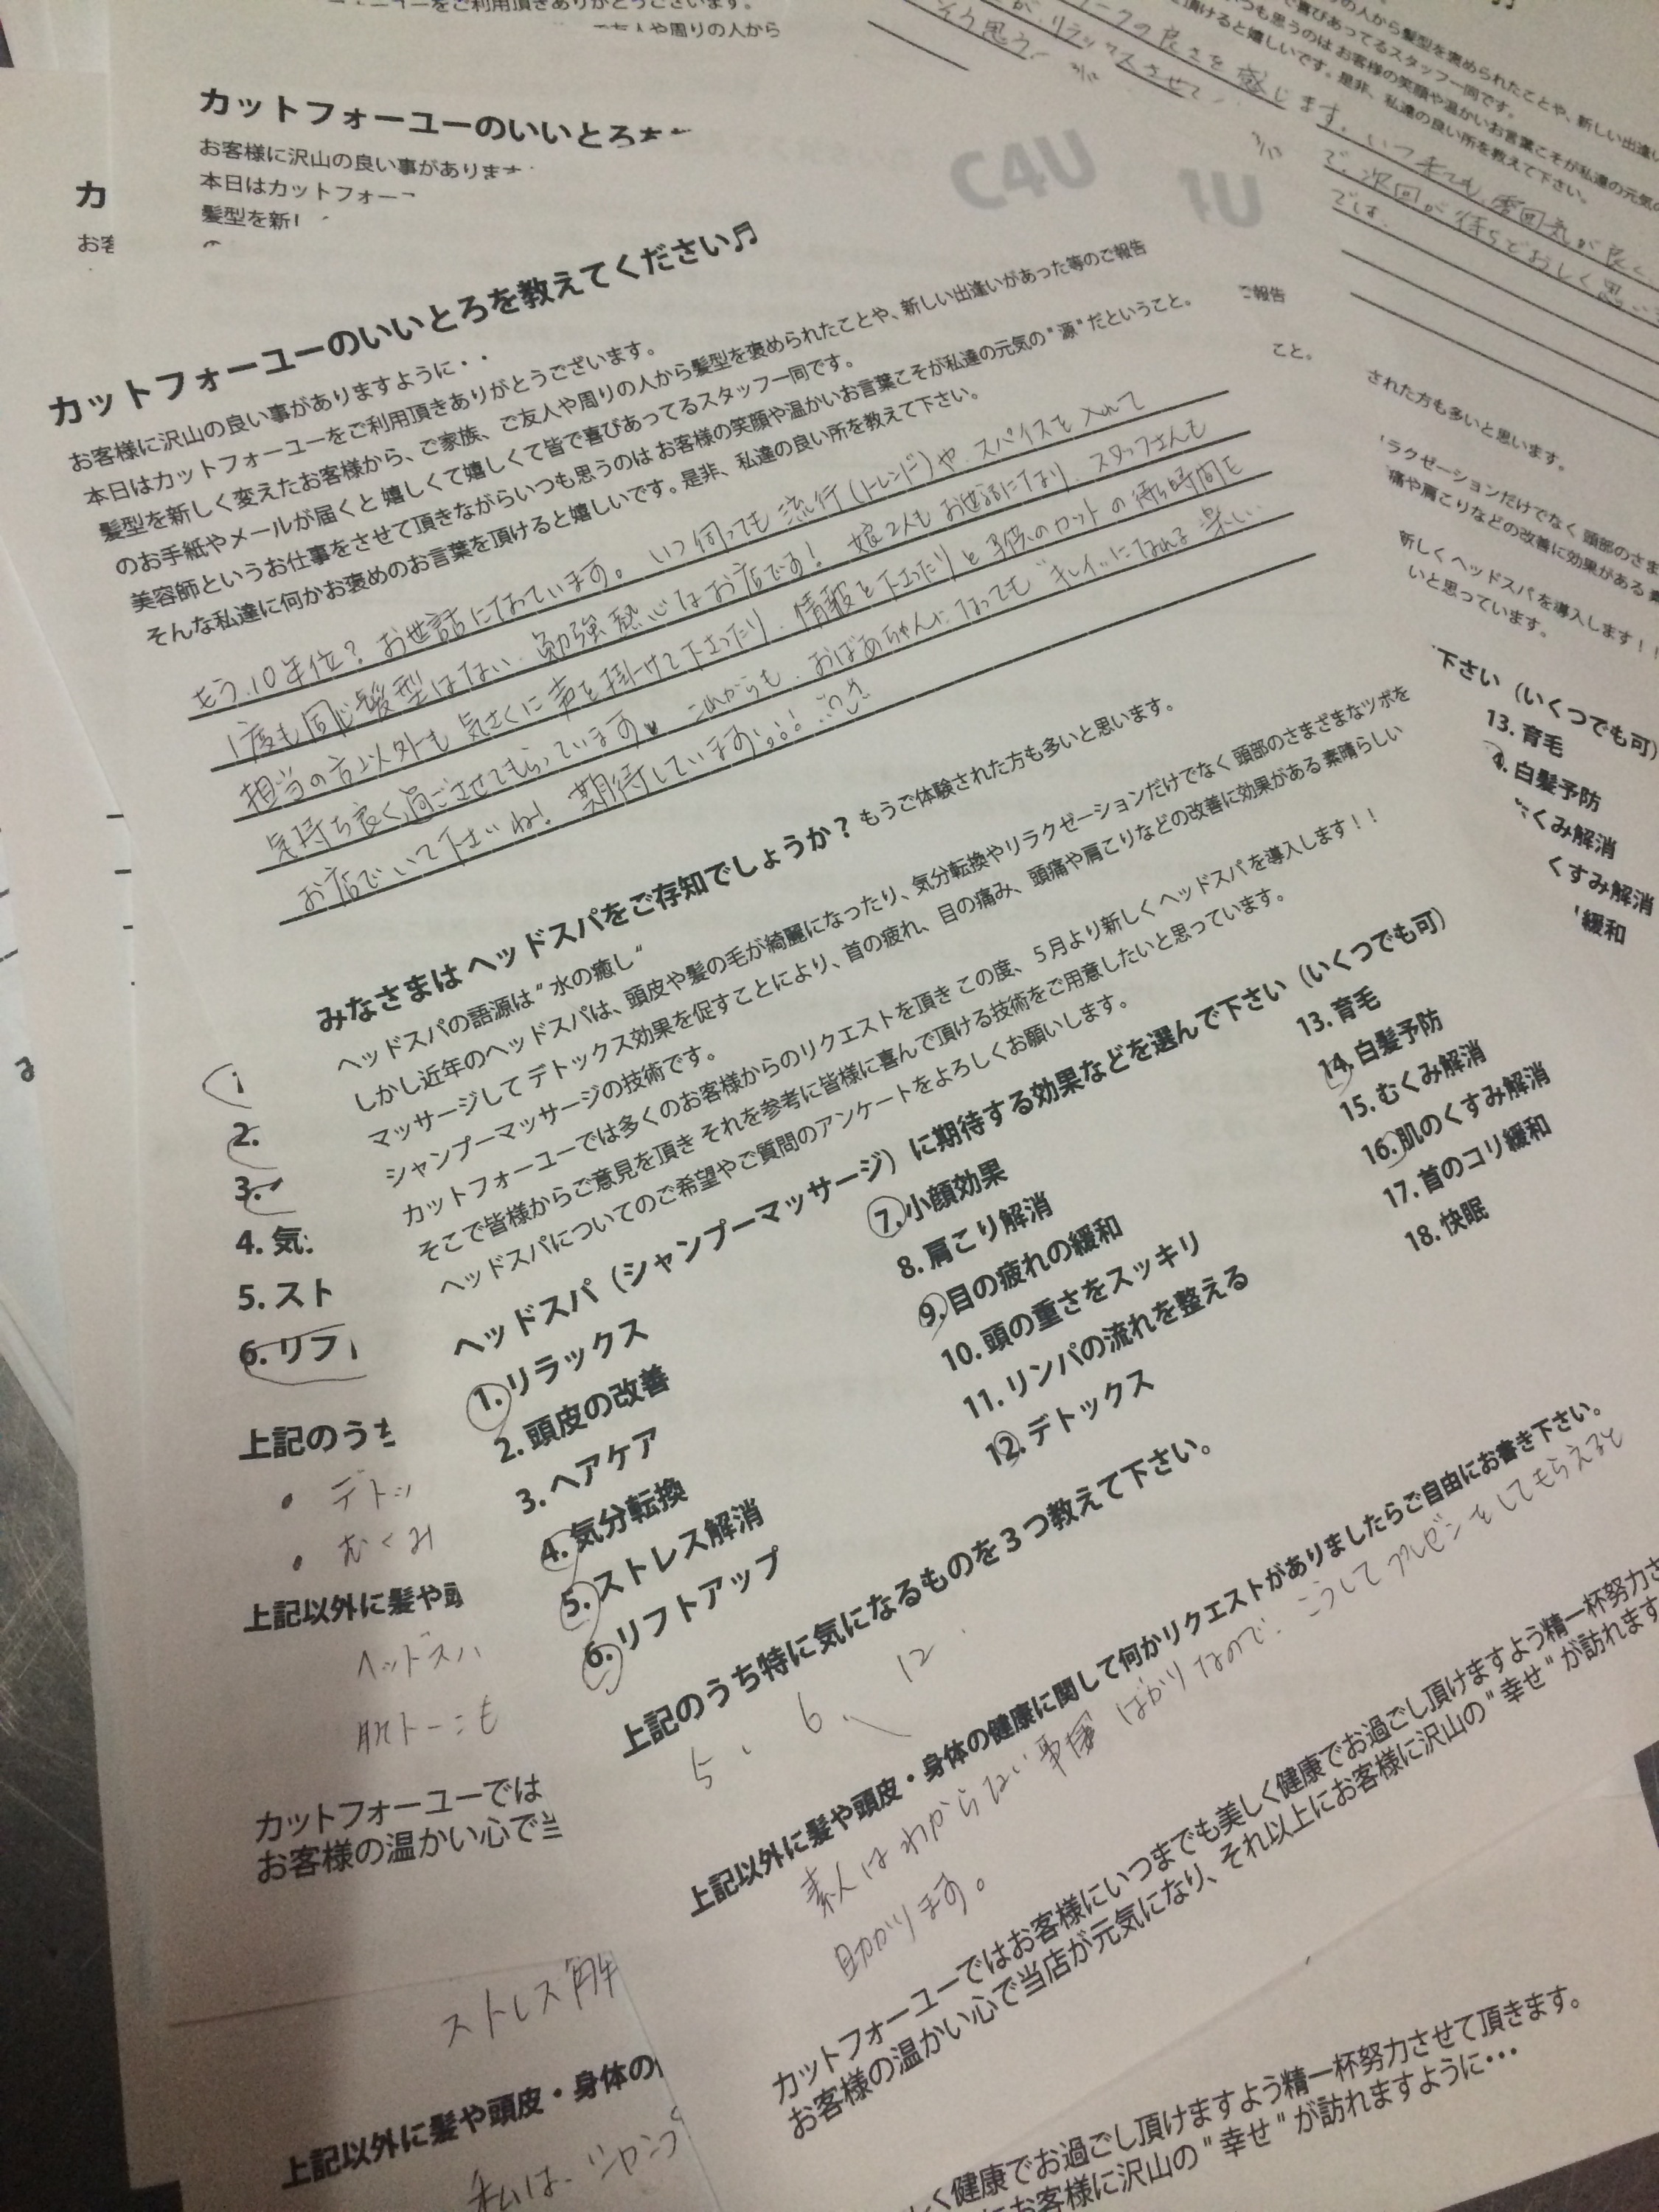 カットフォーユーのいいとろ
お客様に沢山の良い事があります
本日はカットフォー
髪型を新し
カ
お客
C4U
カットフォーユーのいいとろを教えてください♫
お客様に沢山の良い事がありますように・・
本日はカットフォーユーをご利用頂きありがとうございます。
髪型を新しく変えたお客様から、ご家族、ご友人や周りの人から髪型を褒められたことや、新しい出逢いがあった等のご報告
のお手紙やメールが届くと 嬉しくて嬉しくて皆で喜びあってるスタッフ一同です。
美容師というお仕事をさせて頂きながらいつも思うのは お客様の笑顔や温かいお言葉こそが私達の元気の"源"だということ。
そんな私達に何かお褒めのお言葉を頂けると嬉しいです。是非、私達の良い所を教えて下さい。
もう、10年位？お世話になっています。いつ伺っても 流行(トレンド)や、スパイスを入れて
1度も同じ髪型はない、勉強熱心なお店です！ 娘2人も お世話になり、スタッフさんも
担当の方以外も 気さくに声を掛けて下さったり、情報を下さったりと 子供のロットの待ち時間も
気持ち良く過ごさせてもらっています♥ これからも、おばあちゃんになっても"キレイ"になれる 楽しい
お店でいて下さいね！ 期待しています
みなさまは ヘッドスパをご存知でしょうか？ もうご体験された方も多いと思います。
ヘッドスパの語源は"水の癒し"
しかし近年のヘッドスパは、頭皮や髪の毛が綺麗になったり、気分転換やリラクゼーションだけでなく 頭部のさまざまなツボを
マッサージして デトックス効果を促すことにより、首の疲れ、目の痛み、頭痛や肩こりなどの改善に効果がある 素晴らしい
シャンプーマッサージの技術です。
カットフォーユーでは多くのお客様からのリクエストを頂き この度、5月より新しく ヘッドスパを導入します！！
そこで皆様からご意見を頂き それを参考に皆様に喜んで頂ける技術をご用意したいと思っています。
ヘッドスパについてのご希望やご質問のアンケートをよろしくお願いします。
ヘッドスパ（シャンプーマッサージ）に期待する効果などを選んで下さい（いくつでも可）
1. リラックス
2. 頭皮の改善
3. ヘアケア
4. 気分転換
5. ストレス解消
6. リフトアップ
7. 小顔効果
8. 肩こり解消
9. 目の疲れの緩和
10. 頭の重さをスッキリ
11. リンパの流れを整える
12. デトックス
13. 育毛
14. 白髪予防
15. むくみ解消
16. 肌のくすみ解消
17. 首のコリ緩和
18. 快眠
上記のうち特に気になるものを３つ教えて下さい。
5、 6、 12
上記以外に髪や頭皮・身体の健康に関して何かリクエストがありましたらご自由にお書き下さい。
素人はわからない事 ばかりなので、こうして プレゼンをしてもらえると
助かります。
カットフォーユーではお客様にいつまでも美しく健康でお過ごし頂けますよう精一杯努力さ
お客様の温かい心で当店が元気になり、それ以上にお客様に沢山の"幸せ"が訪れます
く健康でお過ごし頂けますよう精一杯努力させて頂きます。
にお客様に沢山の"幸せ"が訪れますように・・・
2.
3.
4. 気
5. スト
6. リフ
上記のうち
・ デトッ
・ むくみ
上記以外に髪や頭
ヘッドスパ
肌トーンも
カットフォーユーでは
お客様の温かい心で当
ストレス解
上記以外に髪や頭皮・身体の
私は、シャンプ
や周りの人から
いつ来ても、雰囲気が良く
で、次回が待ちどおしく思い
では、
3/13
ご報告
こと。
された方も多いと思います。
ラクゼーションだけでなく 頭部のさま
痛や肩こりなどの改善に効果がある 素
新しく ヘッドスパを導入します！！
いと思っています。
下さい（いくつでも可）
13. 育毛
白髪予防
くみ解消
くすみ解消
緩和